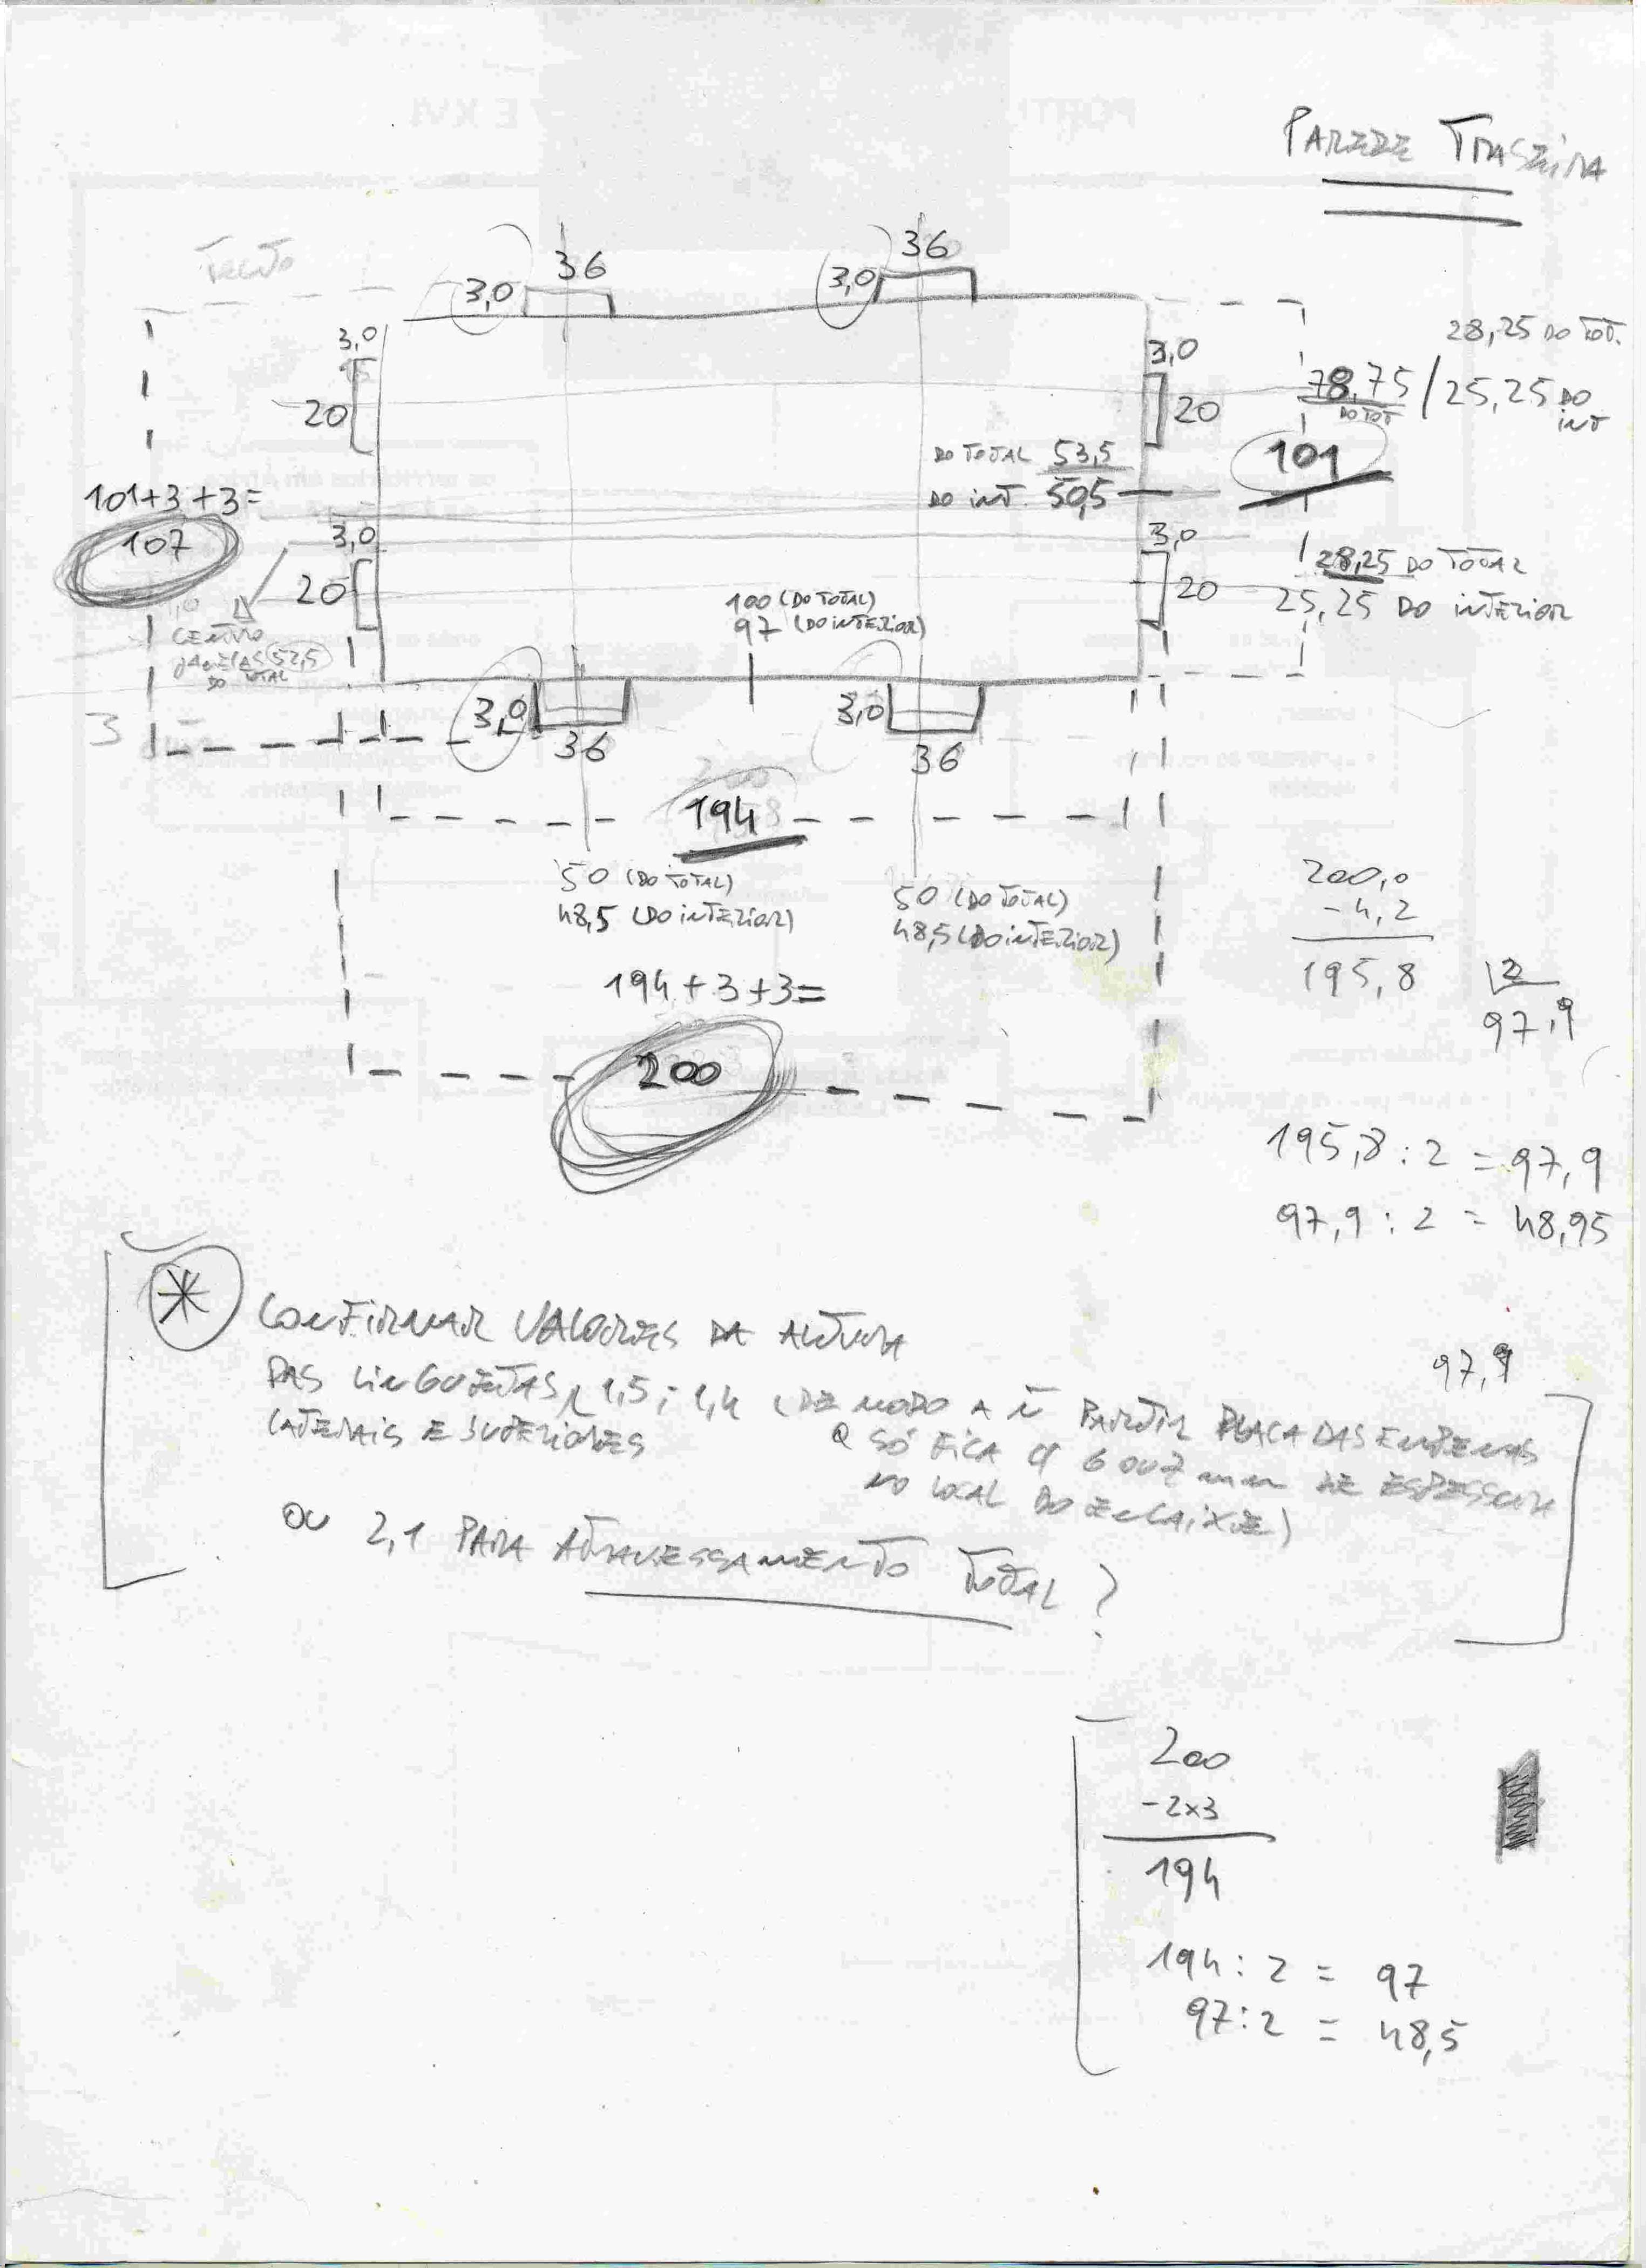 PAREDE TRASEIRA
TECTO
36
36
3,0
3,0
28,25 DO TOT.
3,0
3,0
78,75 / 25,25 DO INT
DO TOT
20
20
DO TOTAL 53,5
101
DO INT. 50,5
101+3+3=
107
3,0
3,0
28,25 DO TOTAL
20
20
25,25 DO INTERIOR
100 (DO TOTAL)
97 (DO INTERIOR)
CENTRO
JANELAS 52,5
DO TOTAL
3
3,0
3,0
36
36
194
50 (DO TOTAL)
48,5 (DO INTERIOR)
50 (DO TOTAL)
48,5 (DO INTERIOR)
200,0
- 4,2
195,8 2
97,9
194+3+3=
200
195,8 : 2 = 97,9
97,9 : 2 = 48,95
* CONFIRMAR VALORES DA ALTURA
97,9
DAS LINGUETAS 1,5 ; 1,4 (DE MODO A Ñ PARTIR PLACA DAS EMPENAS
LATERAIS E SUPERIORES
Q SÓ FICA C/ 6 OU 7 mm DE ESPESSURA
NO LOCAL DO ENCAIXE)
OU 2,1 PARA ATRAVESSAMENTO TOTAL ?
200
- 2x3
194
194 : 2 = 97
97 : 2 = 48,5